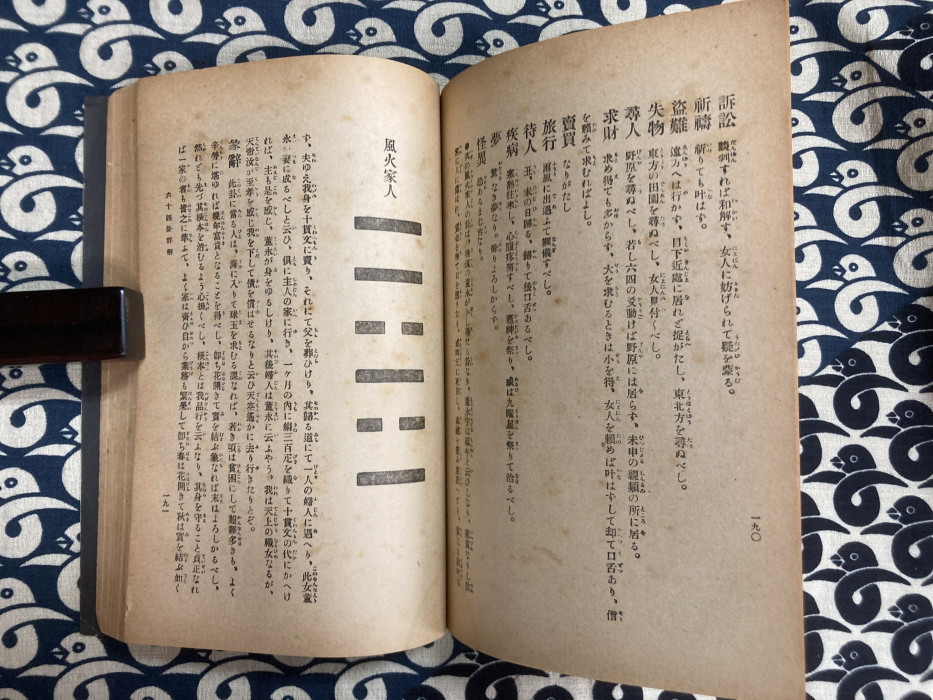 訴訟 談判すれば和解す、女人に妨げられて疑を蒙る。
祈禱 祈りても叶はず。
盜難 遠方へは行かず、目下近處に居れど捉がたし、東北方を尋ぬべし。
失物 東方の田園を尋ぬべし、女人見付くべし。
尋人 野原を尋ぬべし、若し六四の爻動けば野原には居らず、未申の親類の所に居る。
求財 求め得ても多からず、大を求むるときは小を得、女人を頼めば叶はずして却て口舌あり、僧
を頼みて求むればよし。
賣買 なりがたし
旅行 雨露に出遇ふて難儀すべし。
待人 丑、未の日歸る、歸りて後口舌あるべし。
疾病 寒熱往來し、心腹疼痛すべし、竈神を祭り、或は九曜星を祭りて治るべし。
夢 繁なき夢なり、餘りよろしからず。
怪異 恐るるに足らず。
一九〇
風火家人
ず、夫ゆえ我身を十貫文に賣り、それにて父を葬ひけり、其歸る道にて一人の婦人に遇へり、此女董
永が妻に成るべしと云ひ、倶に主人の家に行き、一ヶ月の內に絹三百疋を織りて十貫文の代にかへけ
れば、主も是を感じ、董永が身をゆるしけり、其後婦人は董永に云ふやう、我は天上の織女なるが、
天帝汝が至孝を感じ我を下して債を償はせるなりと云ひ天空遙かに去り行きたりとぞ。
彖辭 此卦に當る人は、海に入りて球玉を求むる課なれば、若き頃は貧困にして艱難多きも、よく
辛勞に堪ゆれば晩年富貴となることを得べし、卽ち花開きて實を結ぶ象なれば末はよろしかるべし、
然れども先づ其根本を治むるよう心掛くべし、根本とは我品行を云ふなり、其身を守ること貞正なれ
ば一家の者も皆之に準ふて、よく家は齊ひ自から業務も繁榮して卽ち春は花開きて秋は實を結ぶ如く
六十四卦詳解
一九一